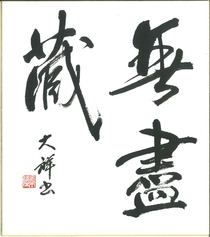 無盡
藏
大祥書